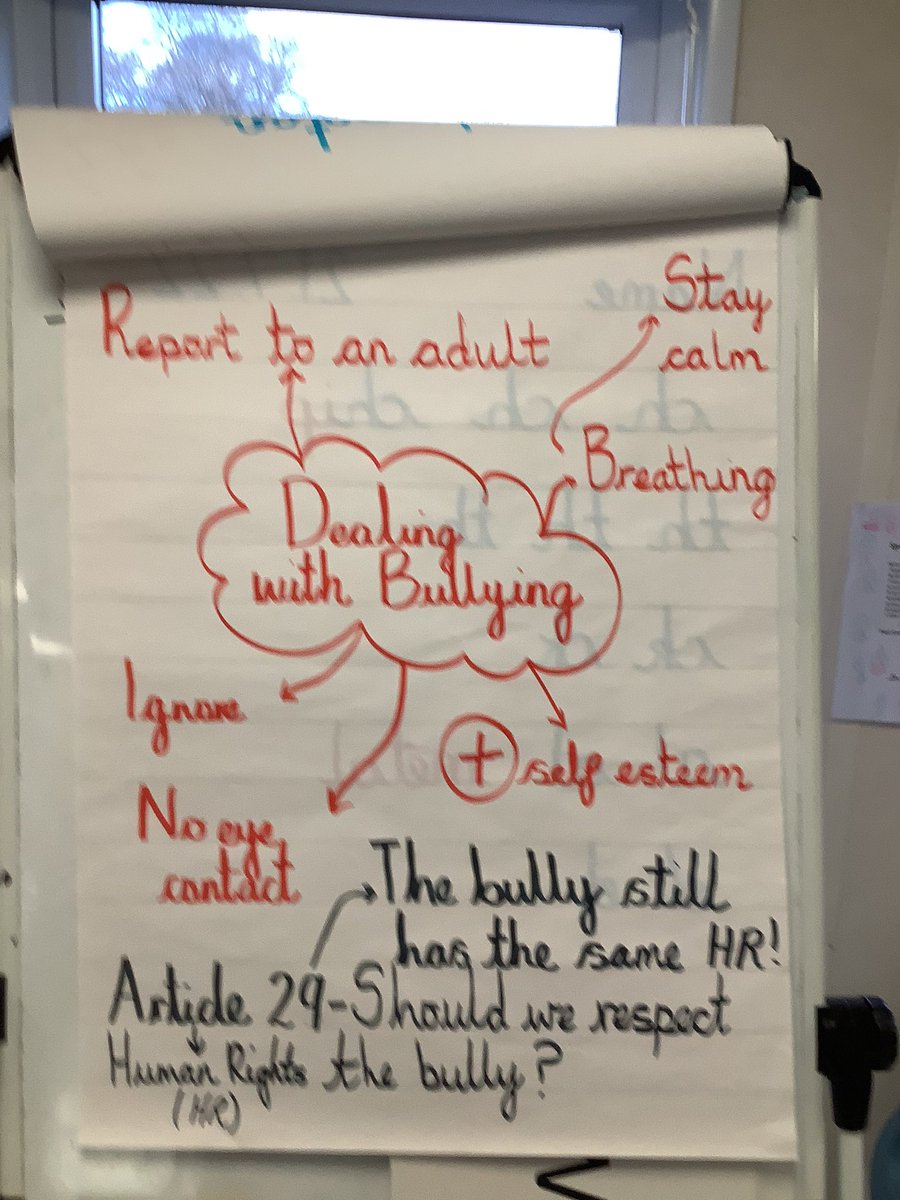 Report to an adult
Stay
calm
Breathing
Dealing
with Bullying
Ignore
+ self esteem
No eye
contact
The bully still
has the same HR!
Article 29-Should we respect
Human Rights the bully?
(HR)